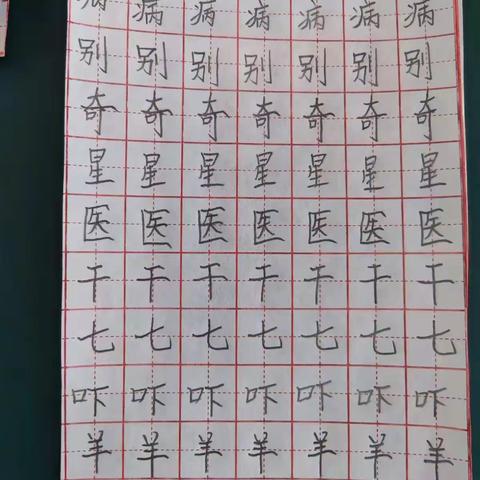 病病病病病病病
别别别别别别别
奇奇奇奇奇奇奇
星星星星星星星
医医医医医医医
干干干干干干干
七七七七七七七
吓吓吓吓吓吓吓
羊羊羊羊羊羊羊